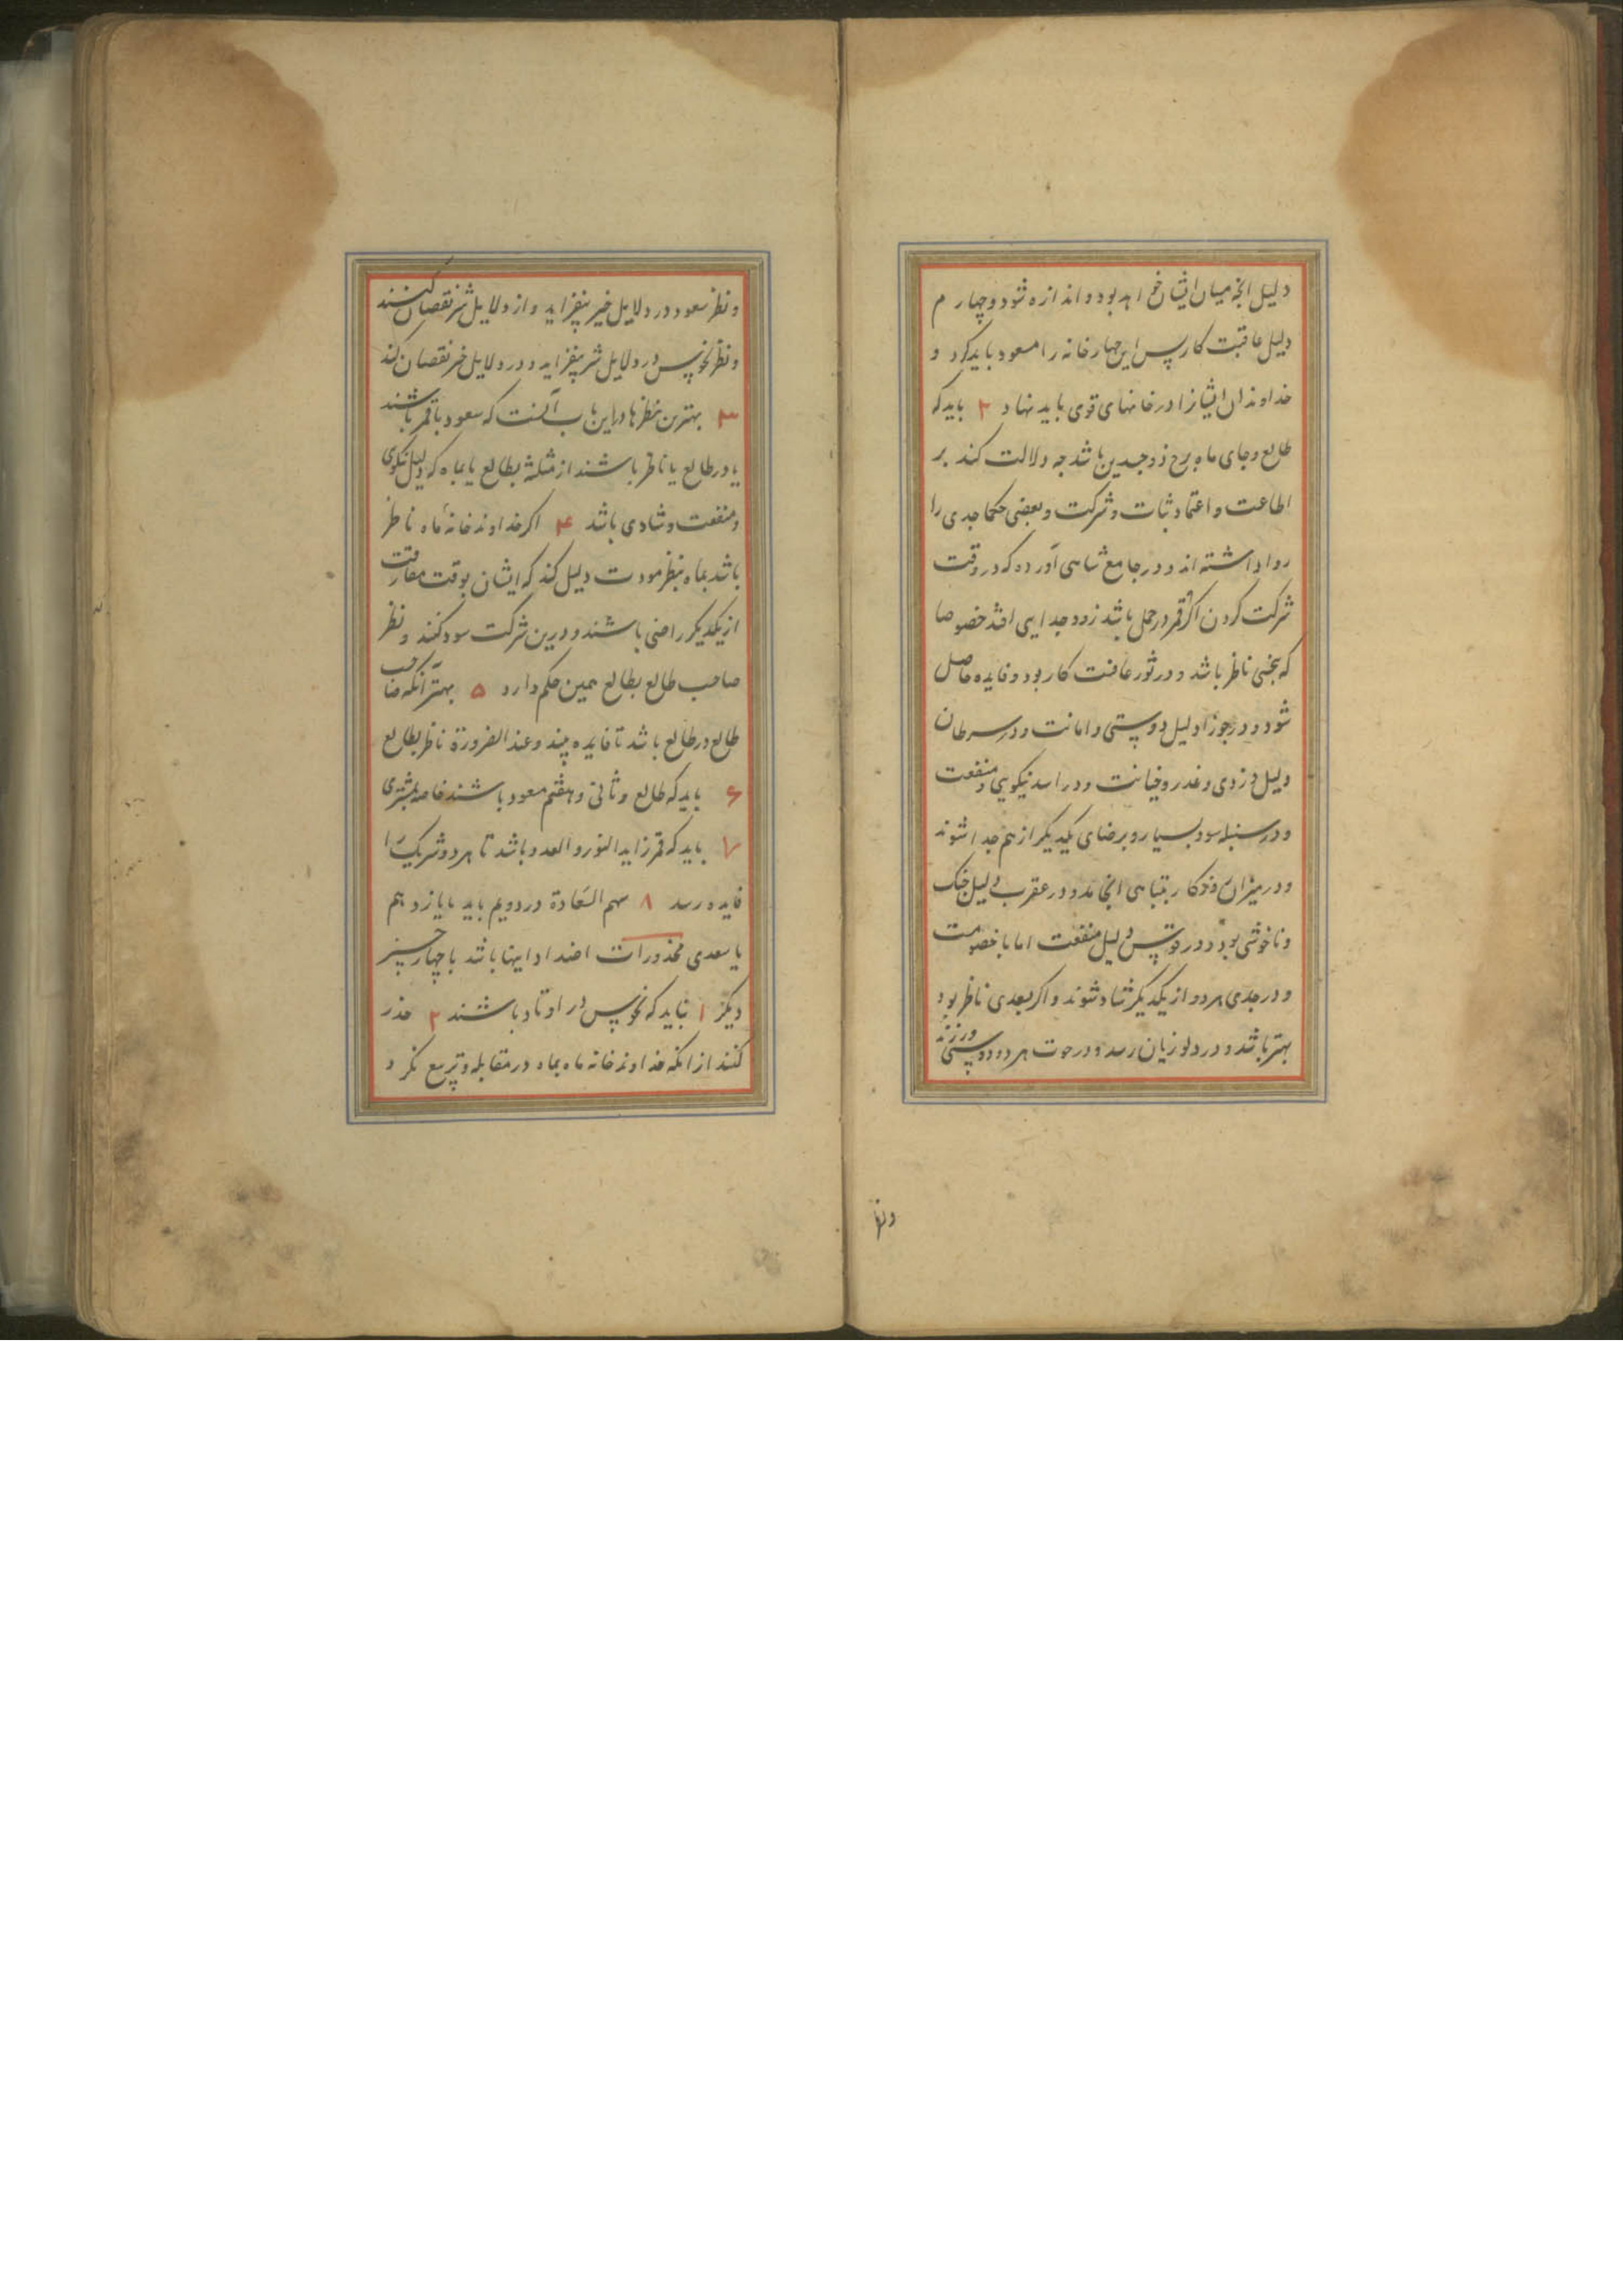 دلیل انچه میان ایشان خواهد بود و اندازه شود و چهارم
دلیل عاقبت کار پس این چهار خانه را مسعود باید کرد و
خداوندان ایشانرا در خانهای قوی باید نهاد ۲ باید که
طالع و جای ماه برج ذوجسدین باشد چه دلالت کند بر
اطاعت و اعتماد و ثبات و شرکت و بعضی حکما جدی را
روا داشته اند و در جامع شاهی آورده که در وقت
شرکت کردن اگر قمر در حمل باشد زود جدایی افتد خصوصا
که بنحسی ناظر باشد و در ثور عافیت کار بود و فایده حاصل
شود و در جوزا دلیل دوستی و امانت و در سرطان
دلیل دزدی و غدر و خیانت و در اسد نیکویی و منفعت
و در سنبله سود بسیار و برضای یکدیگر از هم جدا شوند
و در میزان کار بتباهی انجامد و در عقرب دلیل جنک
و ناخوشی بود و در قوس دلیل منفعت اما با خصومت
و در جدی هر دو از یکدیگر شاد شوند و اکر بعدی ناظر بود
بهتر باشد و در دلو زیان رسد و در حوت هر دو دوستی ورزند
ونظر
و نظر سعود در دلایل خیر بیفزاید و از دلایل شر نقصان کنند
و نظر نحوس در دلایل شر بیفزاید و در دلایل خیر نقصان کند
۳ بهترین نظرها در این باب آنست که سعود با قمر باشند
یا در طالع یا ناظر باشند از مثلثه بطالع یا بماه که دلیل نیکوی
و منفعت و شادی باشد ۴ اکر خداوند خانهٔ ماه ناظر
باشد بماه بنظر مودت دلیل کند که ایشان بوقت مفارقت
از یکدیگر راضی باشند و درین شرکت سود کنند و نظر
صاحب طالع بطالع همین حکم دارد ۵ بهتر آنکه صاحب
طالع در طالع باشد تا فایده بیند و عند الضرورة ناظر بطالع
۶ باید که طالع و ثانی و هفتم مسعود باشند خاصه بمشتری
۷ باید که قمر زاید النور و العدد باشد تا هر دو شریک را
فایده رسد ۸ سهم السعادة در دویم باید یا یازدهم
با سعدی محذورات اضداد اینها باشد با چهار چیز
دیگر ۱ نباید که نحوس در اوتاد باشند ۲ حذر
کنند از انکه خداوند خانه ماه بماه در مقابله و تربیع نکرد